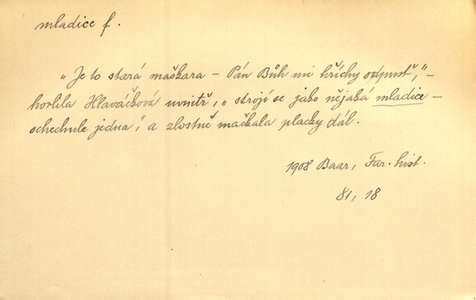 mladice f.
„Je to stará maškara – Pán Bůh mi hříchy odpusť,“ –
horlila Hlaváčková uvnitř, „strojí se jako nějaká mladice –
schechule jedna“, a zlostně mačkala placky dál.
1908 Baar, Far. hist.
81, 18